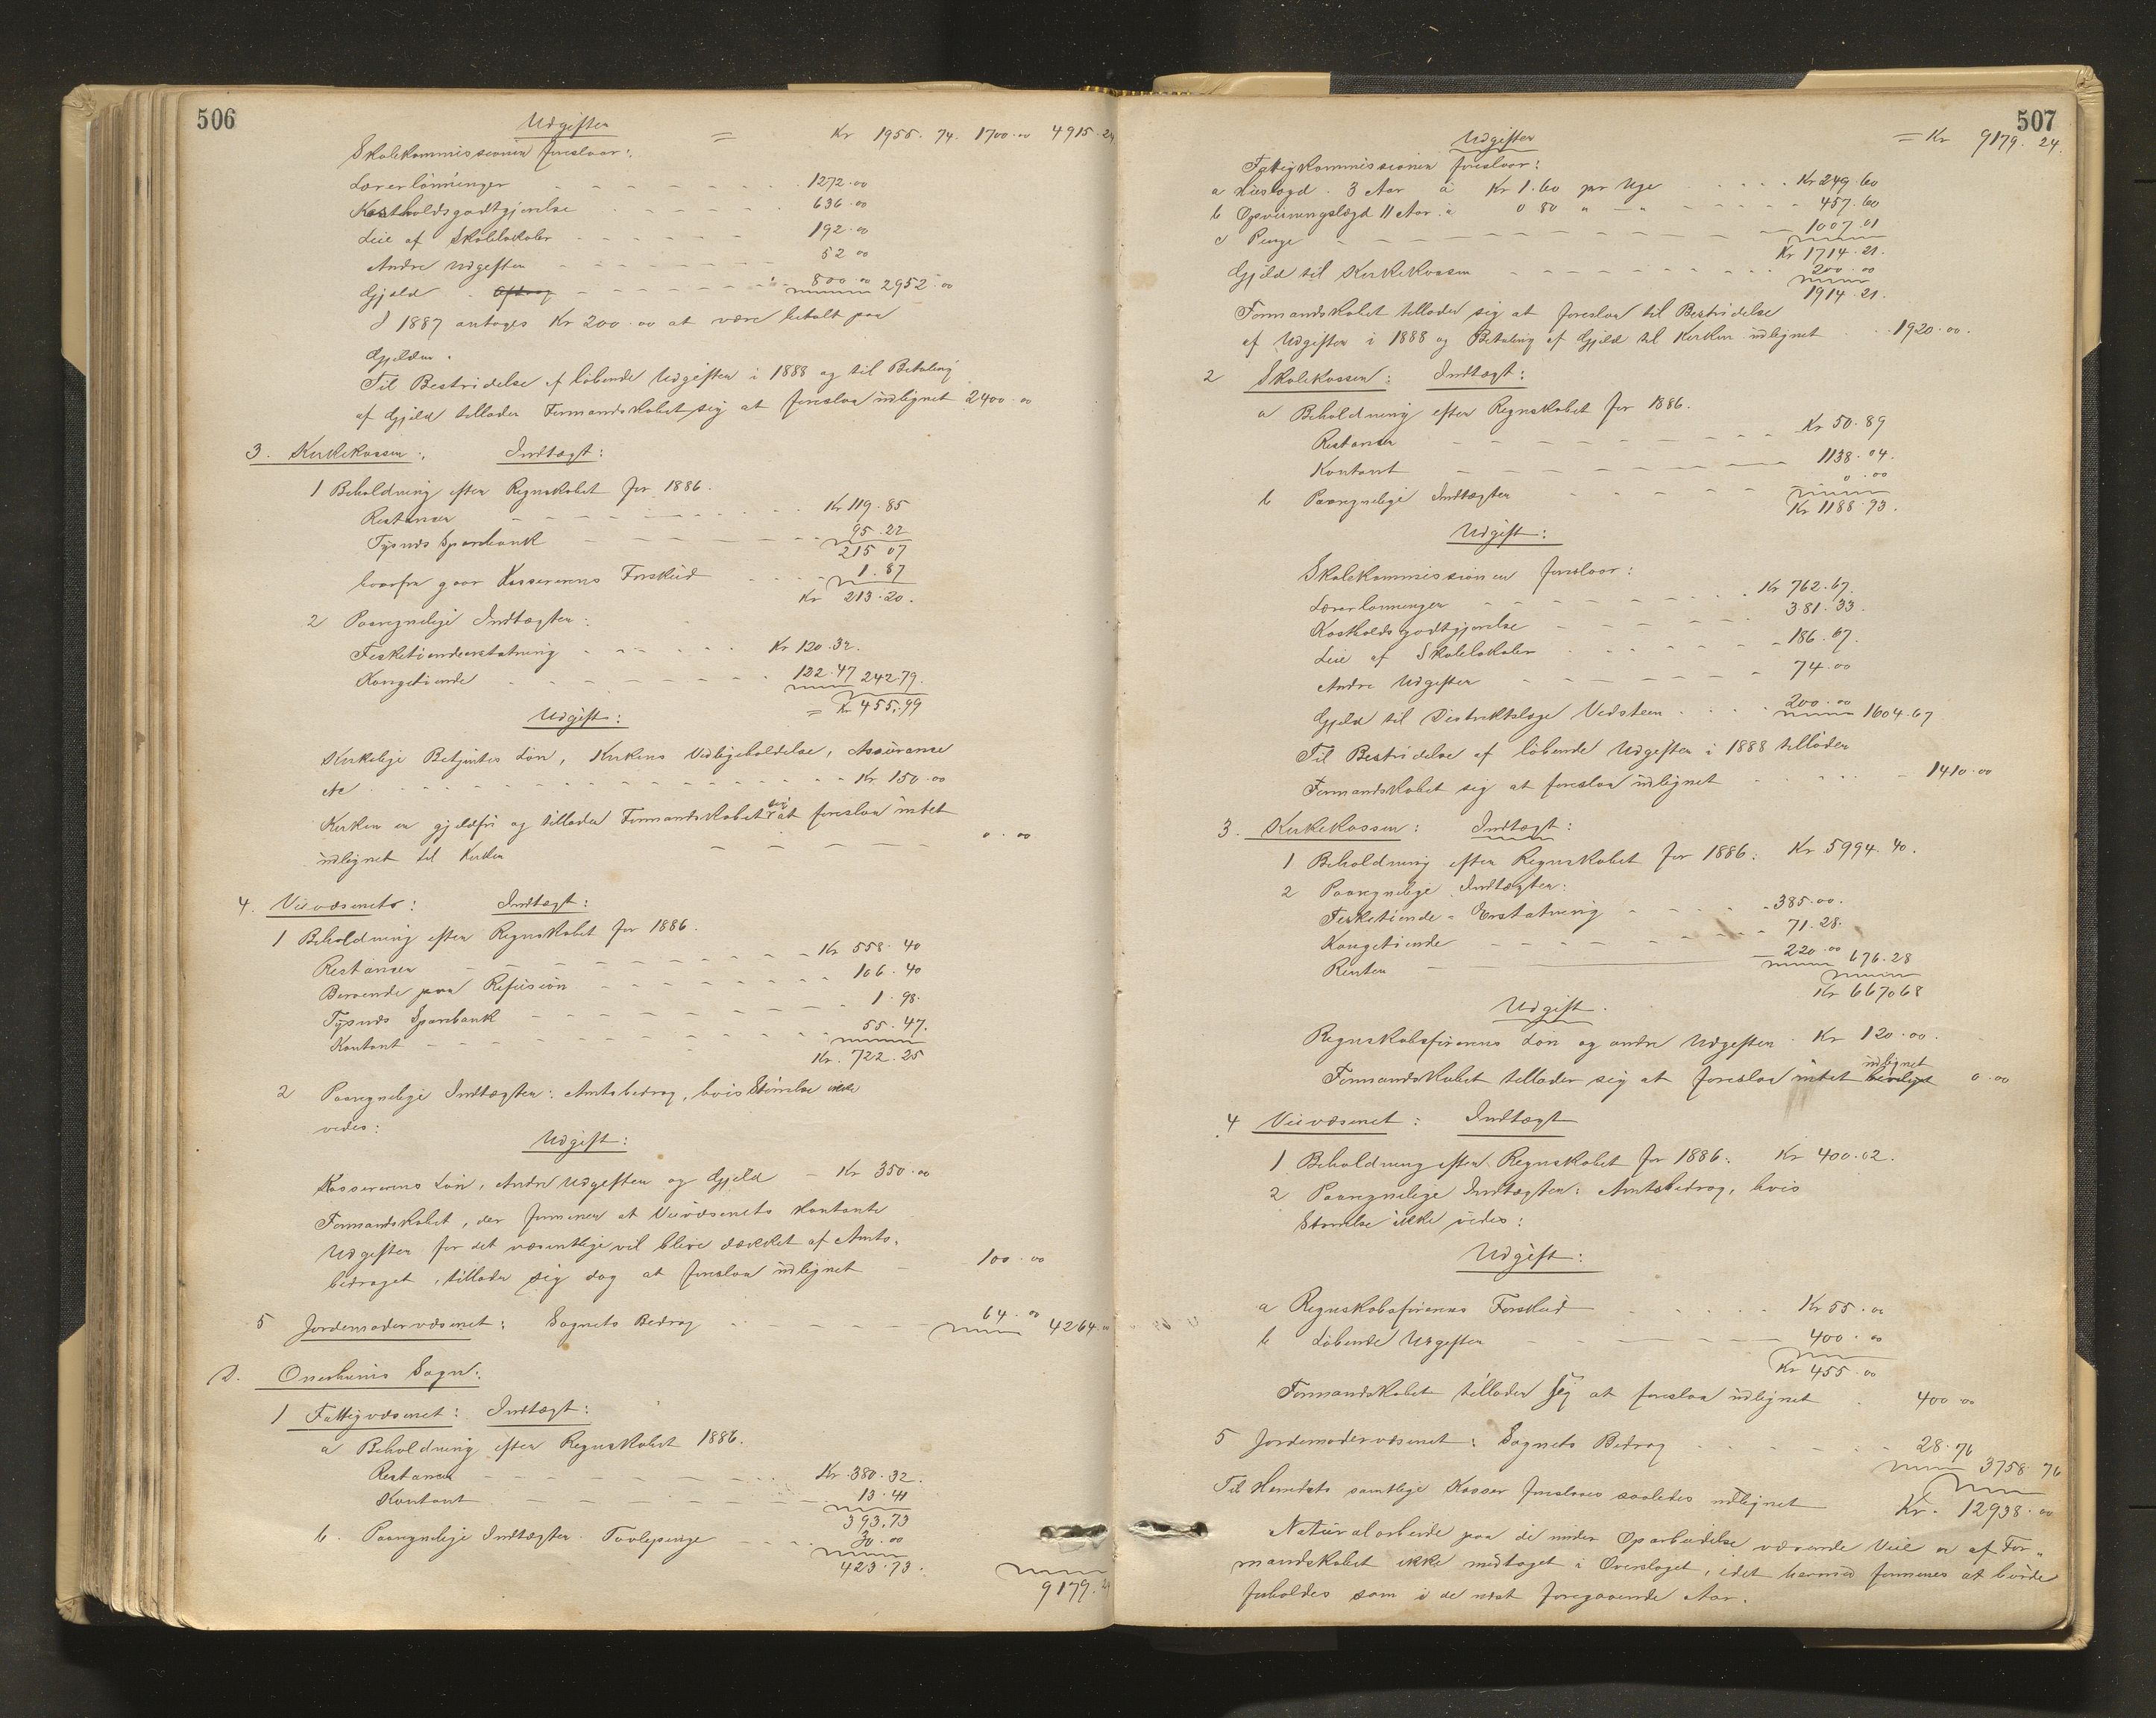 506
Udgifter = Kr 1955. 74. 1700.00 4915.24
Skolekommissionen foreslaar:
Lærerlønninger - - - - 1272.00
Kostholdsgodtgjørelse - - - - 636.00
Leie af Skolelokaler - - - - 192.00
Andre Udgifter - - - - 52 00
Gjæld - - - - 800.00 2952.00
I 1887 antages Kr 200.00 at være betalt paa
Gjælden.
Til Bestridelse af løbende Udgifter i 1888 og til Betaling
af Gjæld tillader Formandskabet sig at foreslaa udlignet 2400.00
3. Kirkekassen: Indtægt:
1 Beholdning efter Regnskabet for 1886.
Restancer - - - - Kr 119.85
Tysnæs Sparebank - - - - 95.22
215 07
hvorfra gaar Kassererens Forskud - - - - 1.87
Kr 213.20.
2 Paaregnelige Indtægter:
Fisketiendeerstatning - - - - Kr 120.32.
Kongetiende - - - - 122.47 242.79.
= Kr 455.99
Udgift:
Kirkelige Betjentes Løn, Kirkens Vedligeholdelse, Assurance
etc - - - - Kr 150.00
Kirken er gjældfri og tillader Formandskabet sig at foreslaa intet
udlignet til Kirken - - - - 0.00
4. Veivæsenets: Indtægt:
1 Beholdning efter Regnskabet for 1886.
Restancer - - - - Kr 558.40
Beroende paa Refusion - - - - 106.40
Tysnæs Sparebank - - - - 1.98.
Kontant - - - - 55.47.
Kr. 722.25
2 Paaregnelige Indtægter: Amtsbedrag, hvis Størrelse ikke
vides:
Udgift:
Kassererens Løn, Andre Udgifter og Gjæld - Kr 350.00
Formandskabet, der formener at Veivæsenets kontante
Udgifter for det væsentlige vil blive dækket af Amts-
bedraget, tillader sig dog at foreslaa udlignet - 100.00
5 Jordemodervæsenet: Sognets Bedrag - - - - 64.00 4264.00
D. Onarheims Sogn:
1 Fattigvæsenet: Indtægt:
a Beholdning efter Regnskabet 1886.
Restancer - - - - Kr. 380.32.
Kontant - - - - 13.41
393.73
b. Paaregnelige Indtægter. Tavlepenge - - - - 30.00
423.73.
9179.24
507
Udgifter = Kr 9179. 24.
Fattigkommissionen foreslaar:
a Huslægd. 3 Aar à Kr 1.60 pr Uge - - - - Kr 249.60
b Opsviningslægd 11 Aar. à 0 80 " - " - - - - 457.60
c Penge - - - - 1007.01
Kr 1714.21.
Gjæld til Kirkekassen - - - - 200.00
1914.21.
Formandskabet tillader sig at foreslaa til Bestridelse
af Udgifter i 1888 og Betaling af Gjæld til Kirken udlignet - - 1920.00.
2 Skolekassen: Indtægt:
a Beholdning efter Regnskabet for 1886.
Restancer - - - - Kr 50.89
Kontant - - - - 1138.04.
b Paaregnelige Indtægter - - - - 0.00
Kr 1188.93.
Udgift:
Skolekommissionen foreslaar:
Lærerlønninger - - - - Kr 762.67.
Kostholdsgodtgjørelse - - - - 381.33.
Leie af Skolelokaler - - - - 186.67.
Andre Udgifter - - - - 74.00
Gjæld til Distriktslæge Vedsteen - - - - 200.00 1604.67
Til Bestridelse af løbende Udgifter i 1888 tillader
Formandskabet sig at foreslaa udlignet - - - - 1410.00
3. Kirkekassen: Indtægt:
1 Beholdning efter Regnskabet for 1886: Kr 5994.40.
2 Paaregnelige Indtægter:
Fisketiende-Erstatning - - - - 385.00.
Kongetiende - - - - 71.28.
Renter - - - - 220.00 676.28
Kr 667068
Udgift.
Regnskabsførerens Løn og andre Udgifter. Kr 120.00.
Formandskabet tillader sig at foreslaa intet udlignet 0.00
4 Veivæsenet: Indtægt
1 Beholdning efter Regnskabet for 1886: Kr 400.02.
2 Paaregnelige Indtægter: Amtsbedrag, hvis
Størrelse ikke vides:
Udgift:
a Regnskabsførerens Forskud - - - - Kr 55.00
b Løbende Udgifter - - - - 400.00
Kr 455.00
Formandskabet tillader sig at foreslaa udlignet . 400 00
5 Jordemodervæsenet: Sognets Bedrag - - - - 28.76 3758.76
Til Herredets samtlige Kasser foreslaaes saaledes udlignet Kr. 12938.00
Naturalarbeide paa de under Oparbeidelse værende Veie er af For-
mandskabet ikke medtaget i Overslaget, idet hermed formenes at burde
forholdes som i de næst foregaaende Aar.